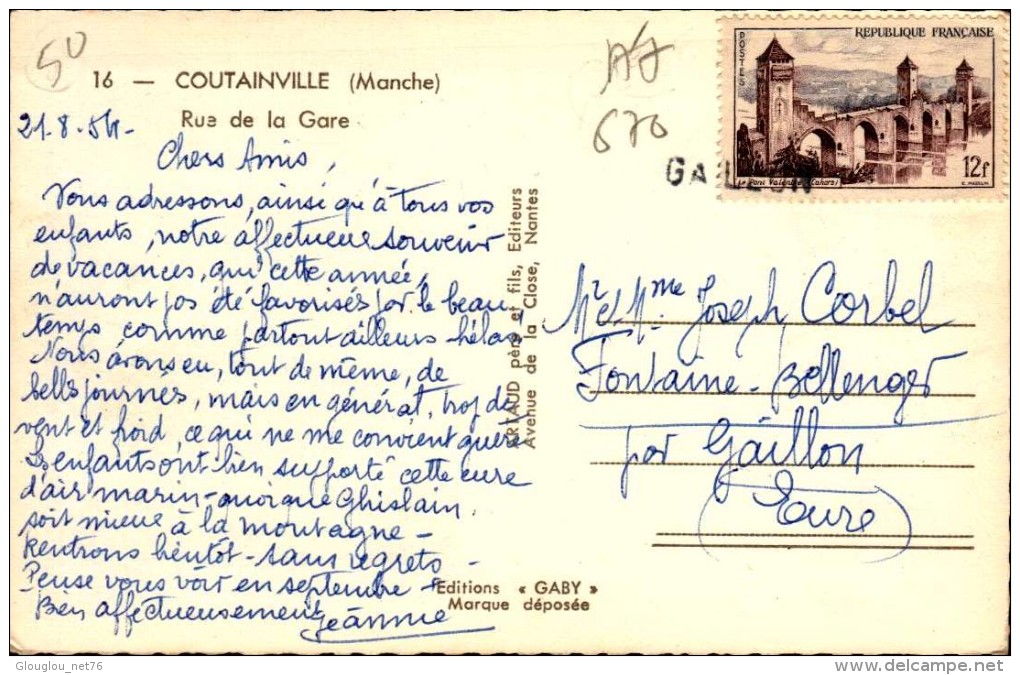 50
16 — COUTAINVILLE (Manche)
Rue de la Gare
21.8.56-
Chers Amis,
Vous adressons, ainsi qu'à tous vos
enfants, notre affectueux souvenir
de vacances, qui cette année,
n'auront pas été favorisés par le beau
temps comme partout ailleurs hélas!
Nous avons eu, tout de même, de
bells journées, mais en général, trop de
vent et froid, ce qui ne me convient guère
Les enfants ont bien supporté cette cure
d'air marin - quoique Ghislain,
soit mieux à la montagne -
Rentrons bientôt - sans regrets -
Pense vous voir en septembre -
Bien affectueusement
Jeannie
ARTAUD père et fils, Editeurs
Avenue de la Close, Nantes
Editions « GABY »
Marque déposée
AJ
670
REPUBLIQUE FRANÇAISE
POSTES
Le Pont Valentré (Cahors)
12f
GAILLON
Mr et Mme Joseph Corbel
Fontaine-Bellenger
par Gaillon
(Eure)
Glouglou_net76
delcampe.net